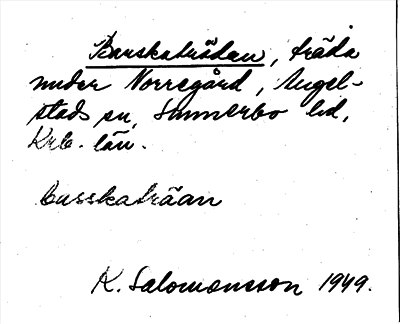 Barskaträdan, träda
under Norregård, Angel-
stads sn, Sunnerbo hd,
Krb. län.
basskaträan
K. Salomonsson 1949.